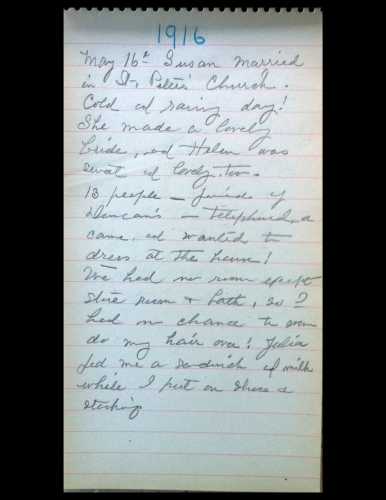 1916
May 16th Susan married
in St. Peter's Church.
Cold & rainy day!
She made a lovely
bride, and Helen was
sweet & lovely too.
13 people — friends of
Duncan's — telephoned &
came, & wanted to
dress at the house!
We had no room except
store room & bath, so I
had no chance to even
do my hair over! Julia
fed me a sandwich & milk
while I put on shoes &
stockings